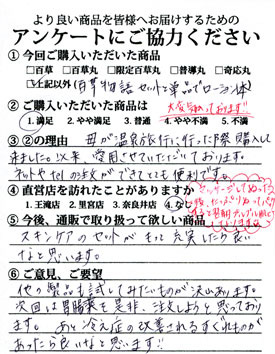 より良い商品を皆様へお届けするための
アンケートにご協力ください
①今回ご購入いただいた商品
□百草 □百草丸 □限定百草丸 □普導丸 □奇応丸
☑上記以外(百草物語セットと単品でローション体)
②ご購入いただいた商品は
大変気に入ってます!!
1.満足 2.やや満足 3.普通 4.やや不満 5.不満
③②の理由 母が温泉旅行に行った際購入して
来ました。以来、愛用させていただいております。
ネットやtelの注文ができてとても便利です。
④直営店を訪れたことがありますか
1.王滝店 2.里宮店 3.奈良井店 4.なし
⑤今後、通販で取り扱って欲しい商品
スキンケアのセットがもっと充実したら良い
なと思います。
⑥ご意見、ご要望
他の製品も試してみたいものが沢山あります。
次回は胃腸薬を是非、注文しようと思っており
ます。 あと冷え症の改善されるすぐれものが
あったら良いなと思います!!